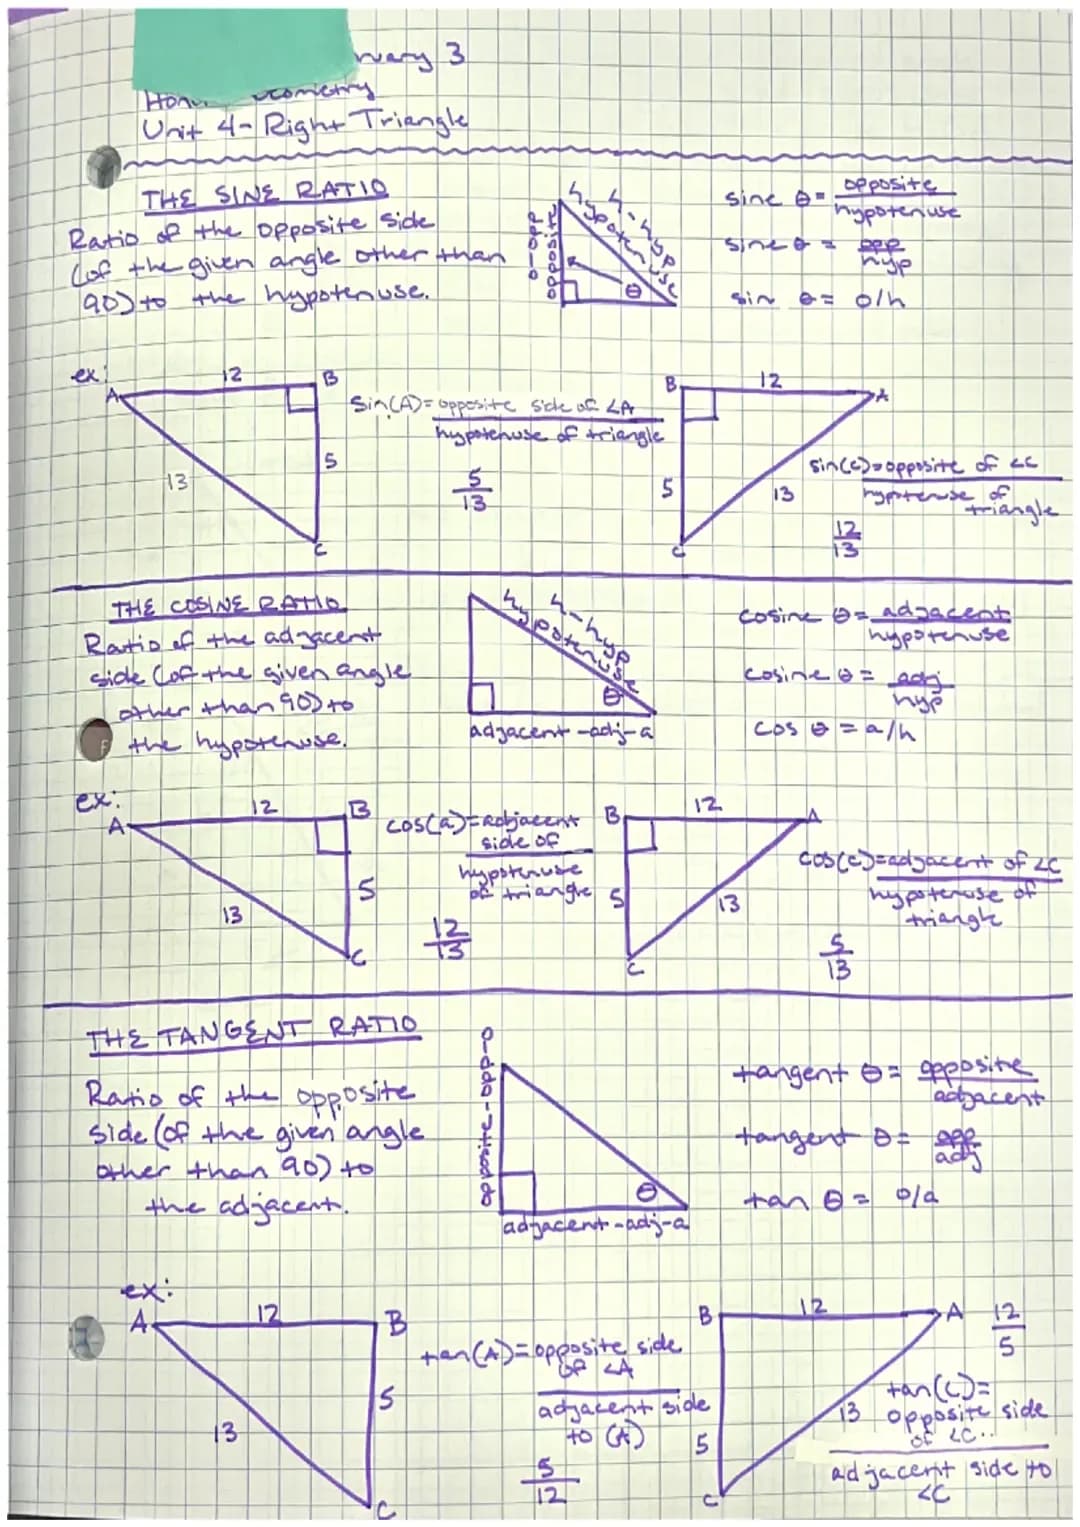 ruary 3
Geometry
Unit 4- Right Triangle
THE SINE RATIO
Ratio of the opposite side
(of the given angle other than
90) to the hypotenuse.
opposite-opp-o
hypotenuse
h-hyp
θ
sine θ = opposite
hypotenuse
sine θ = opp
hyp
sin θ = o/h
ex:
A 12 B
13
5
C
Sin(A)= opposite side of ∠A
hypotenuse of triangle
5
13
B 12 A
5
13
C
sin(C)=opposite of ∠C
hyptenuse of
triangle
12
13
THE COSINE RATIO
Ratio of the adjacent
side (of the given angle
other than 90) to
the hypotenuse.
hypotenuse
h-hyp
θ
adjacent-adj-a
cosine θ = adjacent
hypotenuse
cosine θ = adj
hyp
cos θ = a/h
ex:
A 12 B
13
5
C
cos(a)=adjacent
side of
hypotenuse
of triangle
12
13
B 12 A
5
13
C
cos(c)=adjacent of ∠C
hypotenuse of
triangle
5
13
THE TANGENT RATIO
Ratio of the opposite
side (of the given angle
other than 90) to
the adjacent.
opposite-opp-o
θ
adjacent-adj-a
tangent θ = opposite
adjacent
tangent θ = opp
adj
tan θ = o/a
ex:
A 12 B
13
5
C
tan(A)=opposite side
of ∠A
adjacent side
to (A)
5
12
B 12 A
5
13
C
12
5
tan(C)=
opposite side
of ∠C..
adjacent side to
∠C